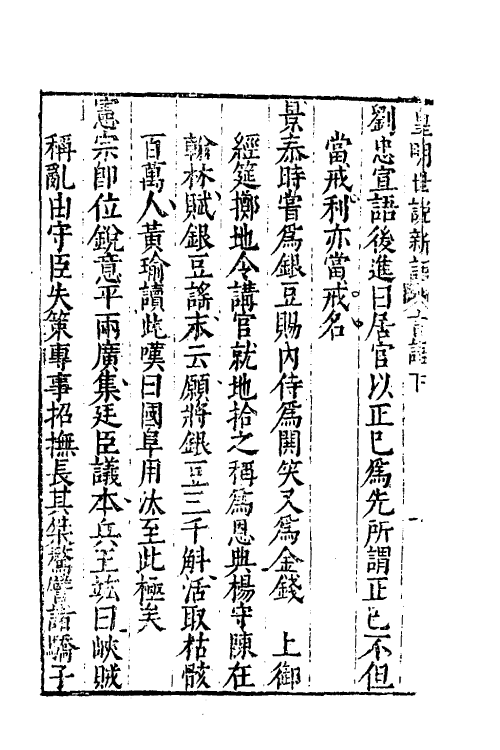 皇明世說新語 言語下 一
劉忠宣語後進曰居官以正已爲先所謂正已不但
當戒利亦當戒名
景泰時嘗爲銀豆賜內侍爲閧笑又爲金錢 上御
經筵擲地令講官就地拾之稱爲恩典楊守陳在
翰林賦銀豆謠末云願將銀豆三千斛活取枯骸
百萬人黃瑜讀此嘆曰國阜用汰至此極矣
憲宗卽位銳意平兩廣集廷臣議本兵王竑曰峽賊
稱亂由守臣失策專事招撫長其桀驁譬諸驕子